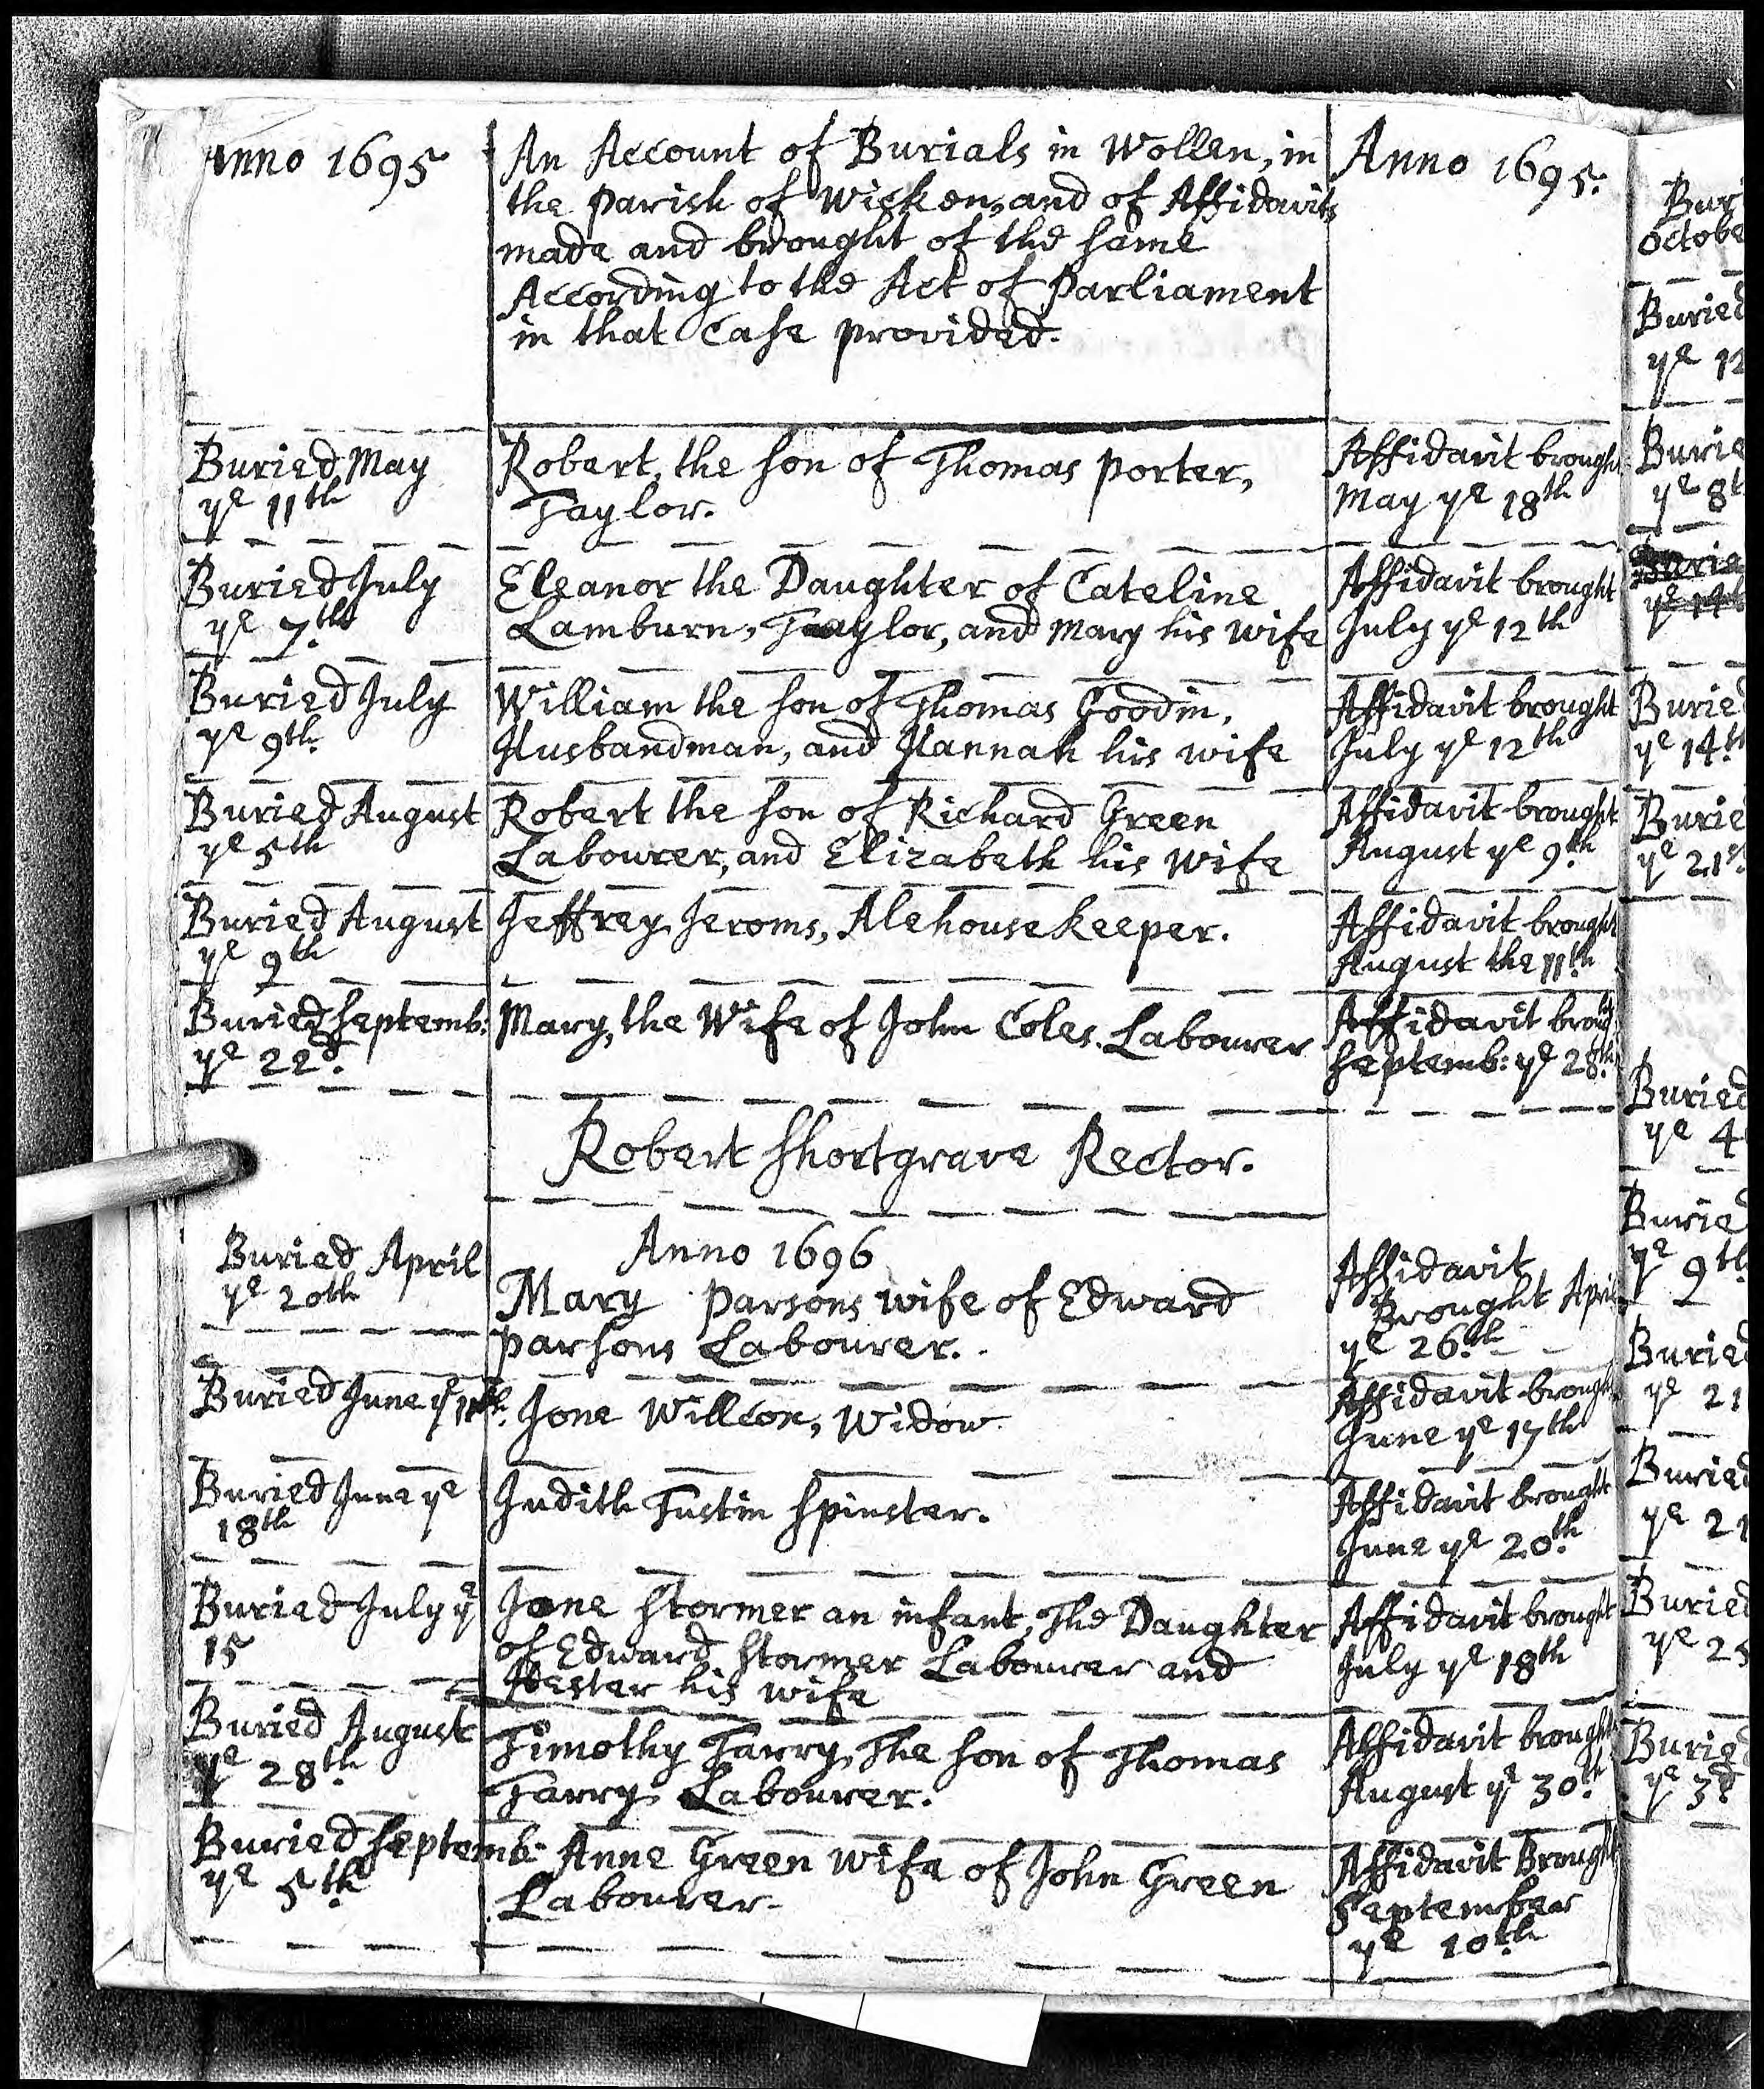 Anno 1695
An Account of Burials in Wollen, in
the Parish of Wicken, and of Affidavits
made and brought of the same
According to the Act of Parliament
in that Case provided.
Anno 1695.
Buried May
ye 11th
Robert, the son of Thomas Porter,
Taylor.
Affidavit brought
May ye 18th
Buried July
ye 7th.
Eleanor the Daughter of Cateline
Lamburn, Taylor, and Mary his wife
Affidavit brought
July ye 12th
Buried July
ye 9th.
William the son of Thomas Goodin,
Husbandman, and Hannah his wife
Affidavit brought
July ye 12th
Buried August
ye 5th
Robert the son of Richard Green
Labourer, and Elizabeth his wife
Affidavit brought
August ye 9th.
Buried August
ye 9th
Jeffrey Jeroms, Alehousekeeper.
Affidavit brought
August the 11th.
Buried Septemb:
ye 22d.
Mary, the Wife of John Coles. Labourer
Affidavit
Septemb: ye 28th.
Robert Shortgrave Rector.
Anno 1696
Buried April
ye 20th
Mary Parsons wife of Edward
Parsons Labourer.
Affidavit
Brought April
ye 26th.
Buried June ye
Jone Willcox, Widow
Affidavit brought
June ye 17th
Buried June ye
18th
Judith Tustin Spinster.
Affidavit brought
June ye 20th.
Buried July ye
15
Jane Stormer an infant, The Daughter
of Edward Stormer Labourer and
Hester his wife
Affidavit brought
July ye 18th
Buried August
ye 28th.
Timothy Tarry, The son of Thomas
Tarry Labourer.
Affidavit brought
August ye 30th.
Buried Septemb:
ye 5th.
Anne Green wife of John Green
Labourer.
Affidavit Brought
September
ye 10th.
Buried
ye 12
ye 8t
Buried
ye 14th
ye 21st.
Buried
ye 4
Buried
ye 9th
Buried
ye 21
Buried
ye 21
Buried
ye 25
Buried
ye 3d